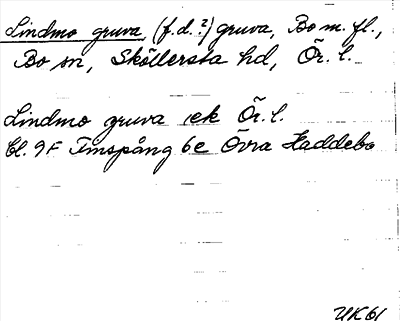 Lindmo gruva (f.d.?) gruva, Bo m. fl.,
Bo sn, Sköllersta hd, Ör. l.
Lindmo gruva ek Ör. l.
Bl. 9F Finspång 6e Övra Haddebo
UK 61